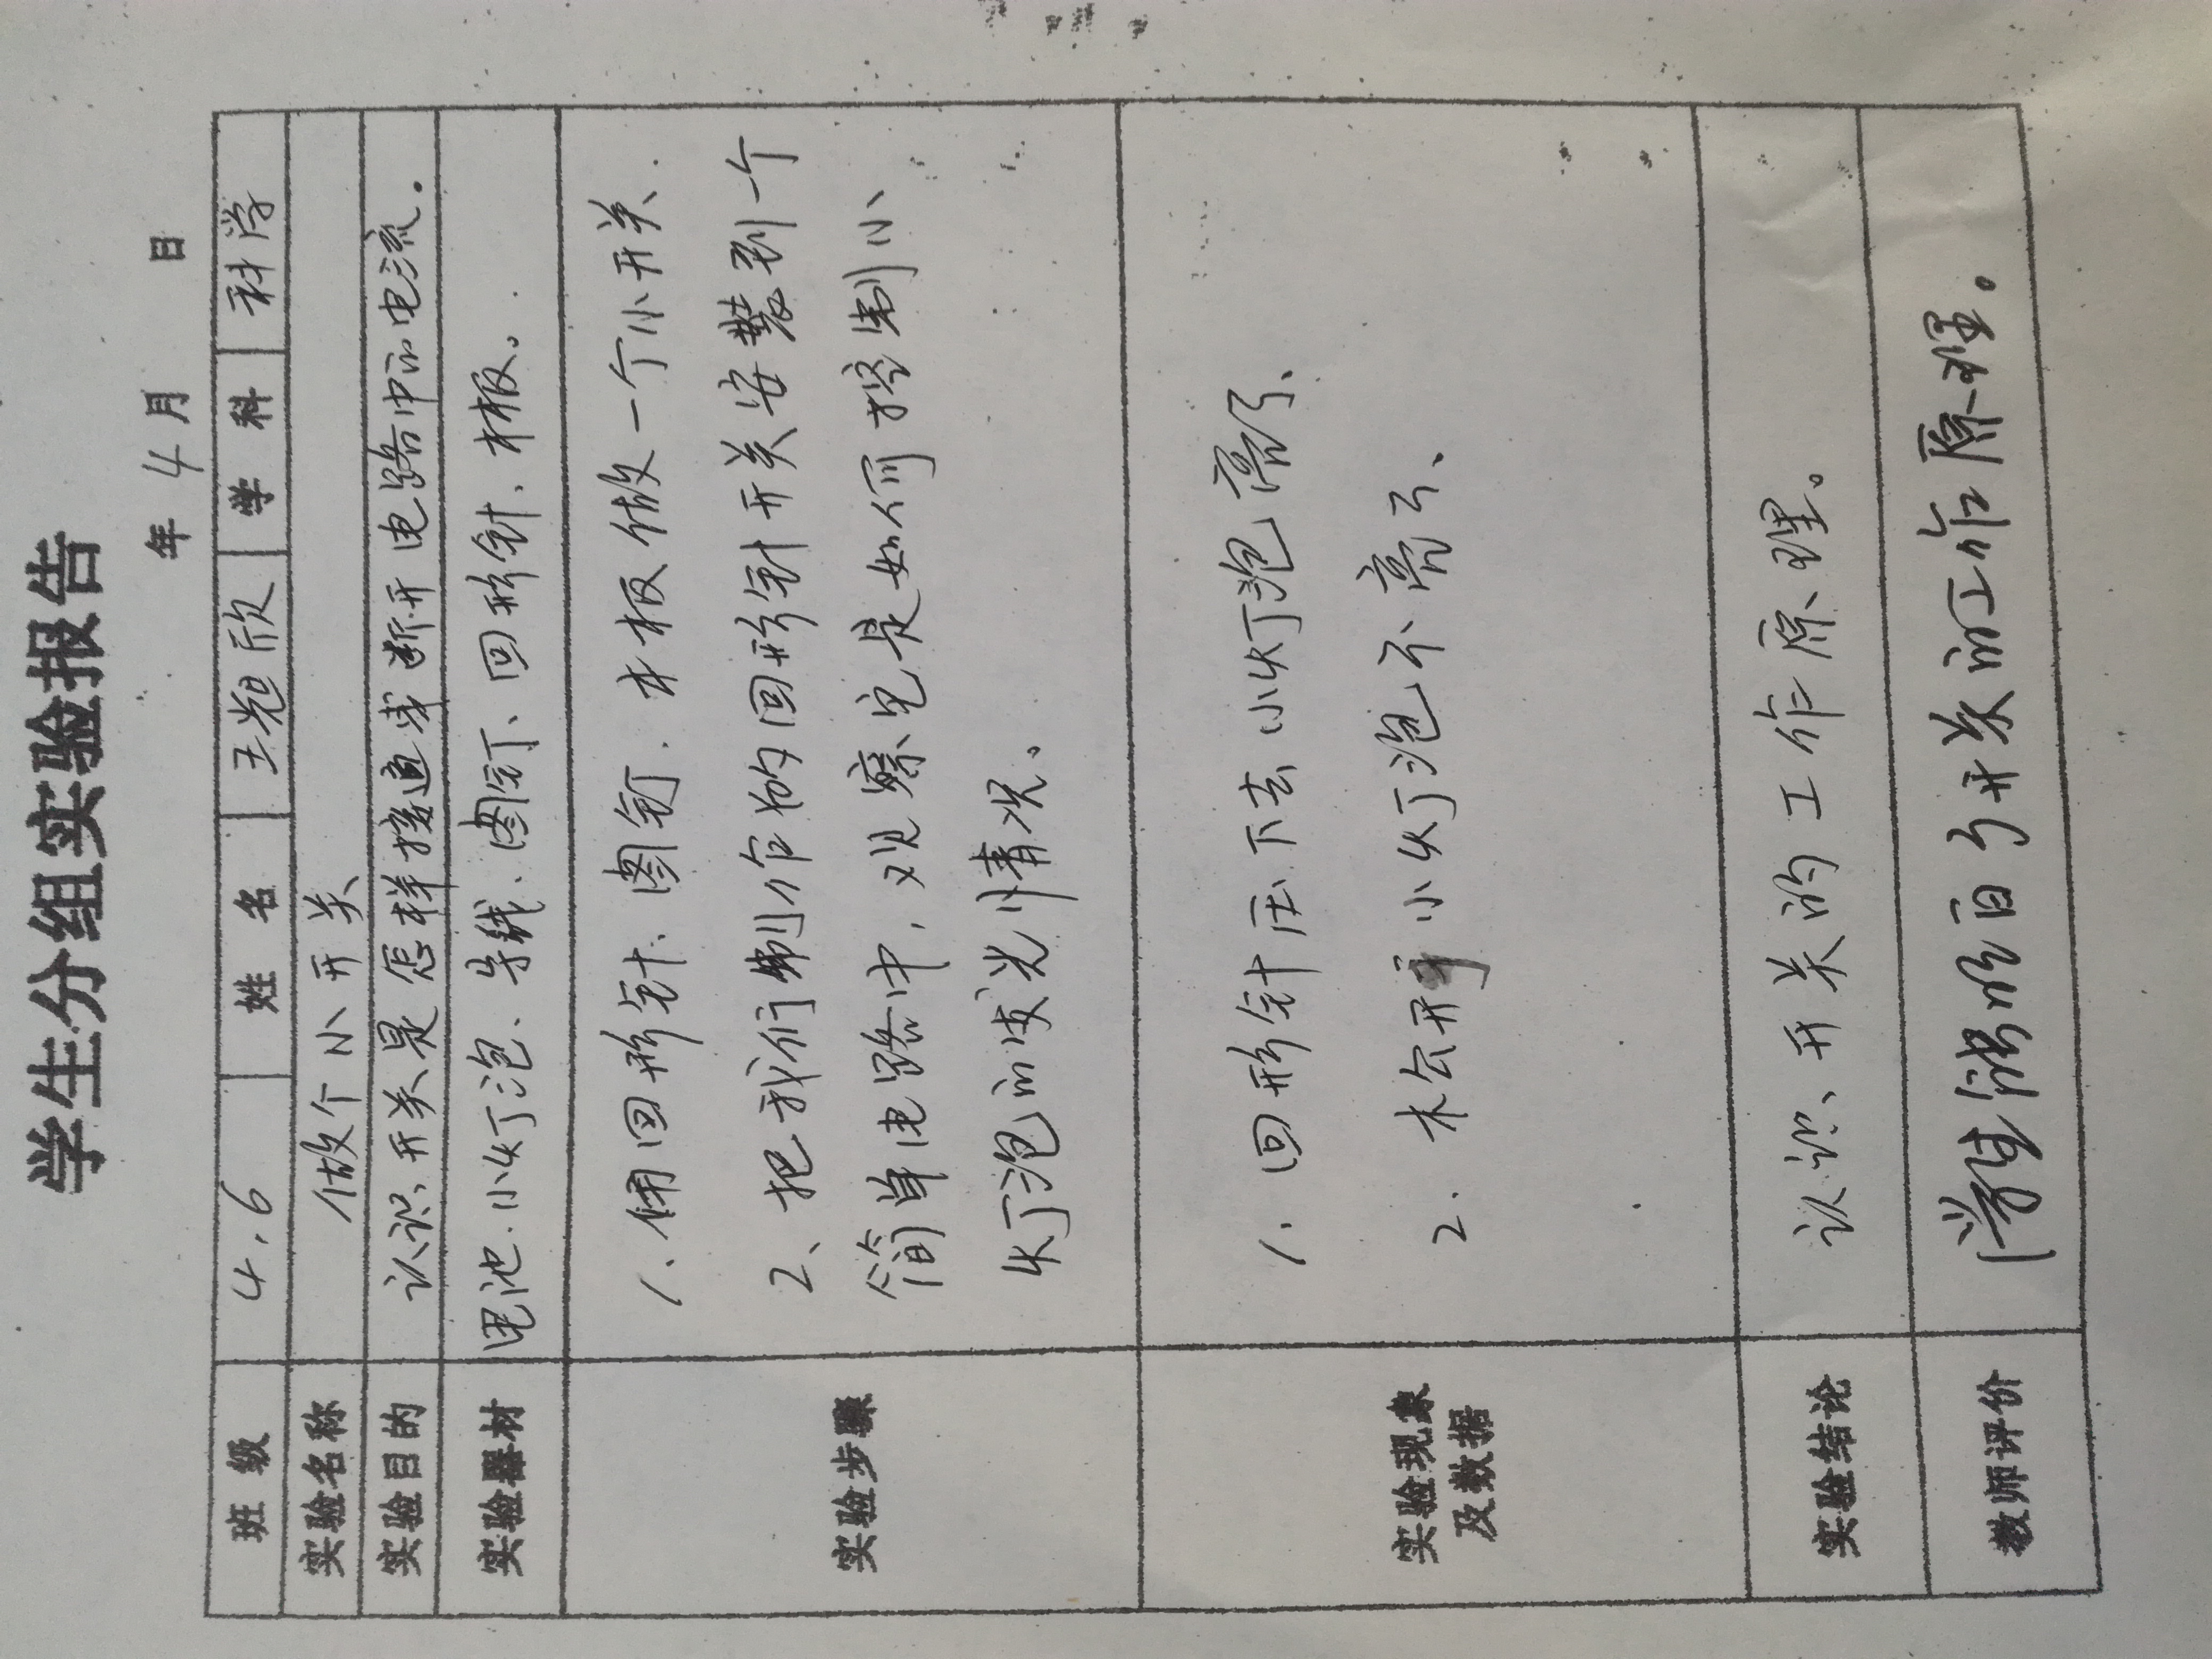 学生分组实验报告
年 4 月 日
班 级 4.6 姓 名 王旭欣 学 科 科学
实验名称 做个小开关
实验目的 认识开关是怎样接通或断开电路中的电流.
实验器材 电池.小灯泡、导线、图钉、回形针、木板。
实验步骤
1、用回形针、图钉、木板做一个小开关.
2、把我们制作的回形针开关安装到一个
简单电路中,观察它是如何控制小
灯泡的发光情况。
实验现象
及数据
1. 回形针压下去小灯泡亮了、
2. 松开 小灯泡不亮了、
实验结论 认识开关的工作原理。
教师评价 学生能明白了开关的工作原理。